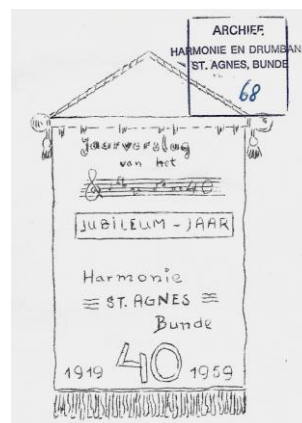 ARCHIEF
HARMONIE EN DRUMBAN
ST. AGNES, BUNDE
68
Jaarverslag
van het
40
JUBILEUM - JAAR
Harmonie
ST. AGNES
Bunde
1919 40 1959